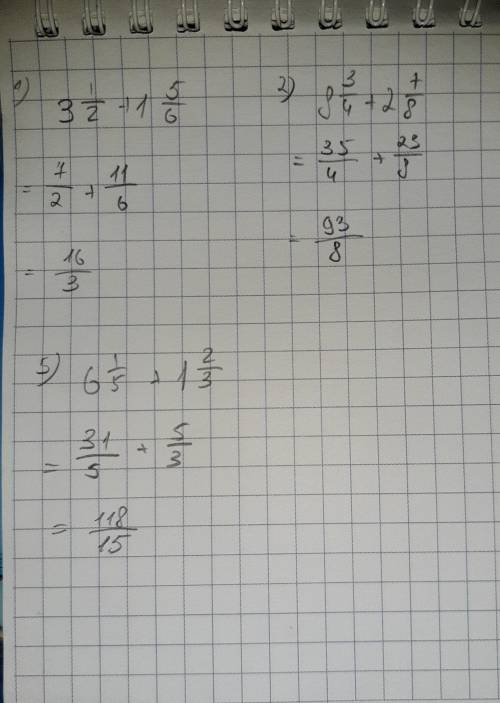 1) 3 1/2 + 1 5/6
= 7/2 + 11/6
= 16/3
2) 8 3/4 + 2 7/8
= 35/4 + 23/8
= 93/8
5) 6 1/5 + 1 2/3
= 31/5 + 5/3
= 118/15